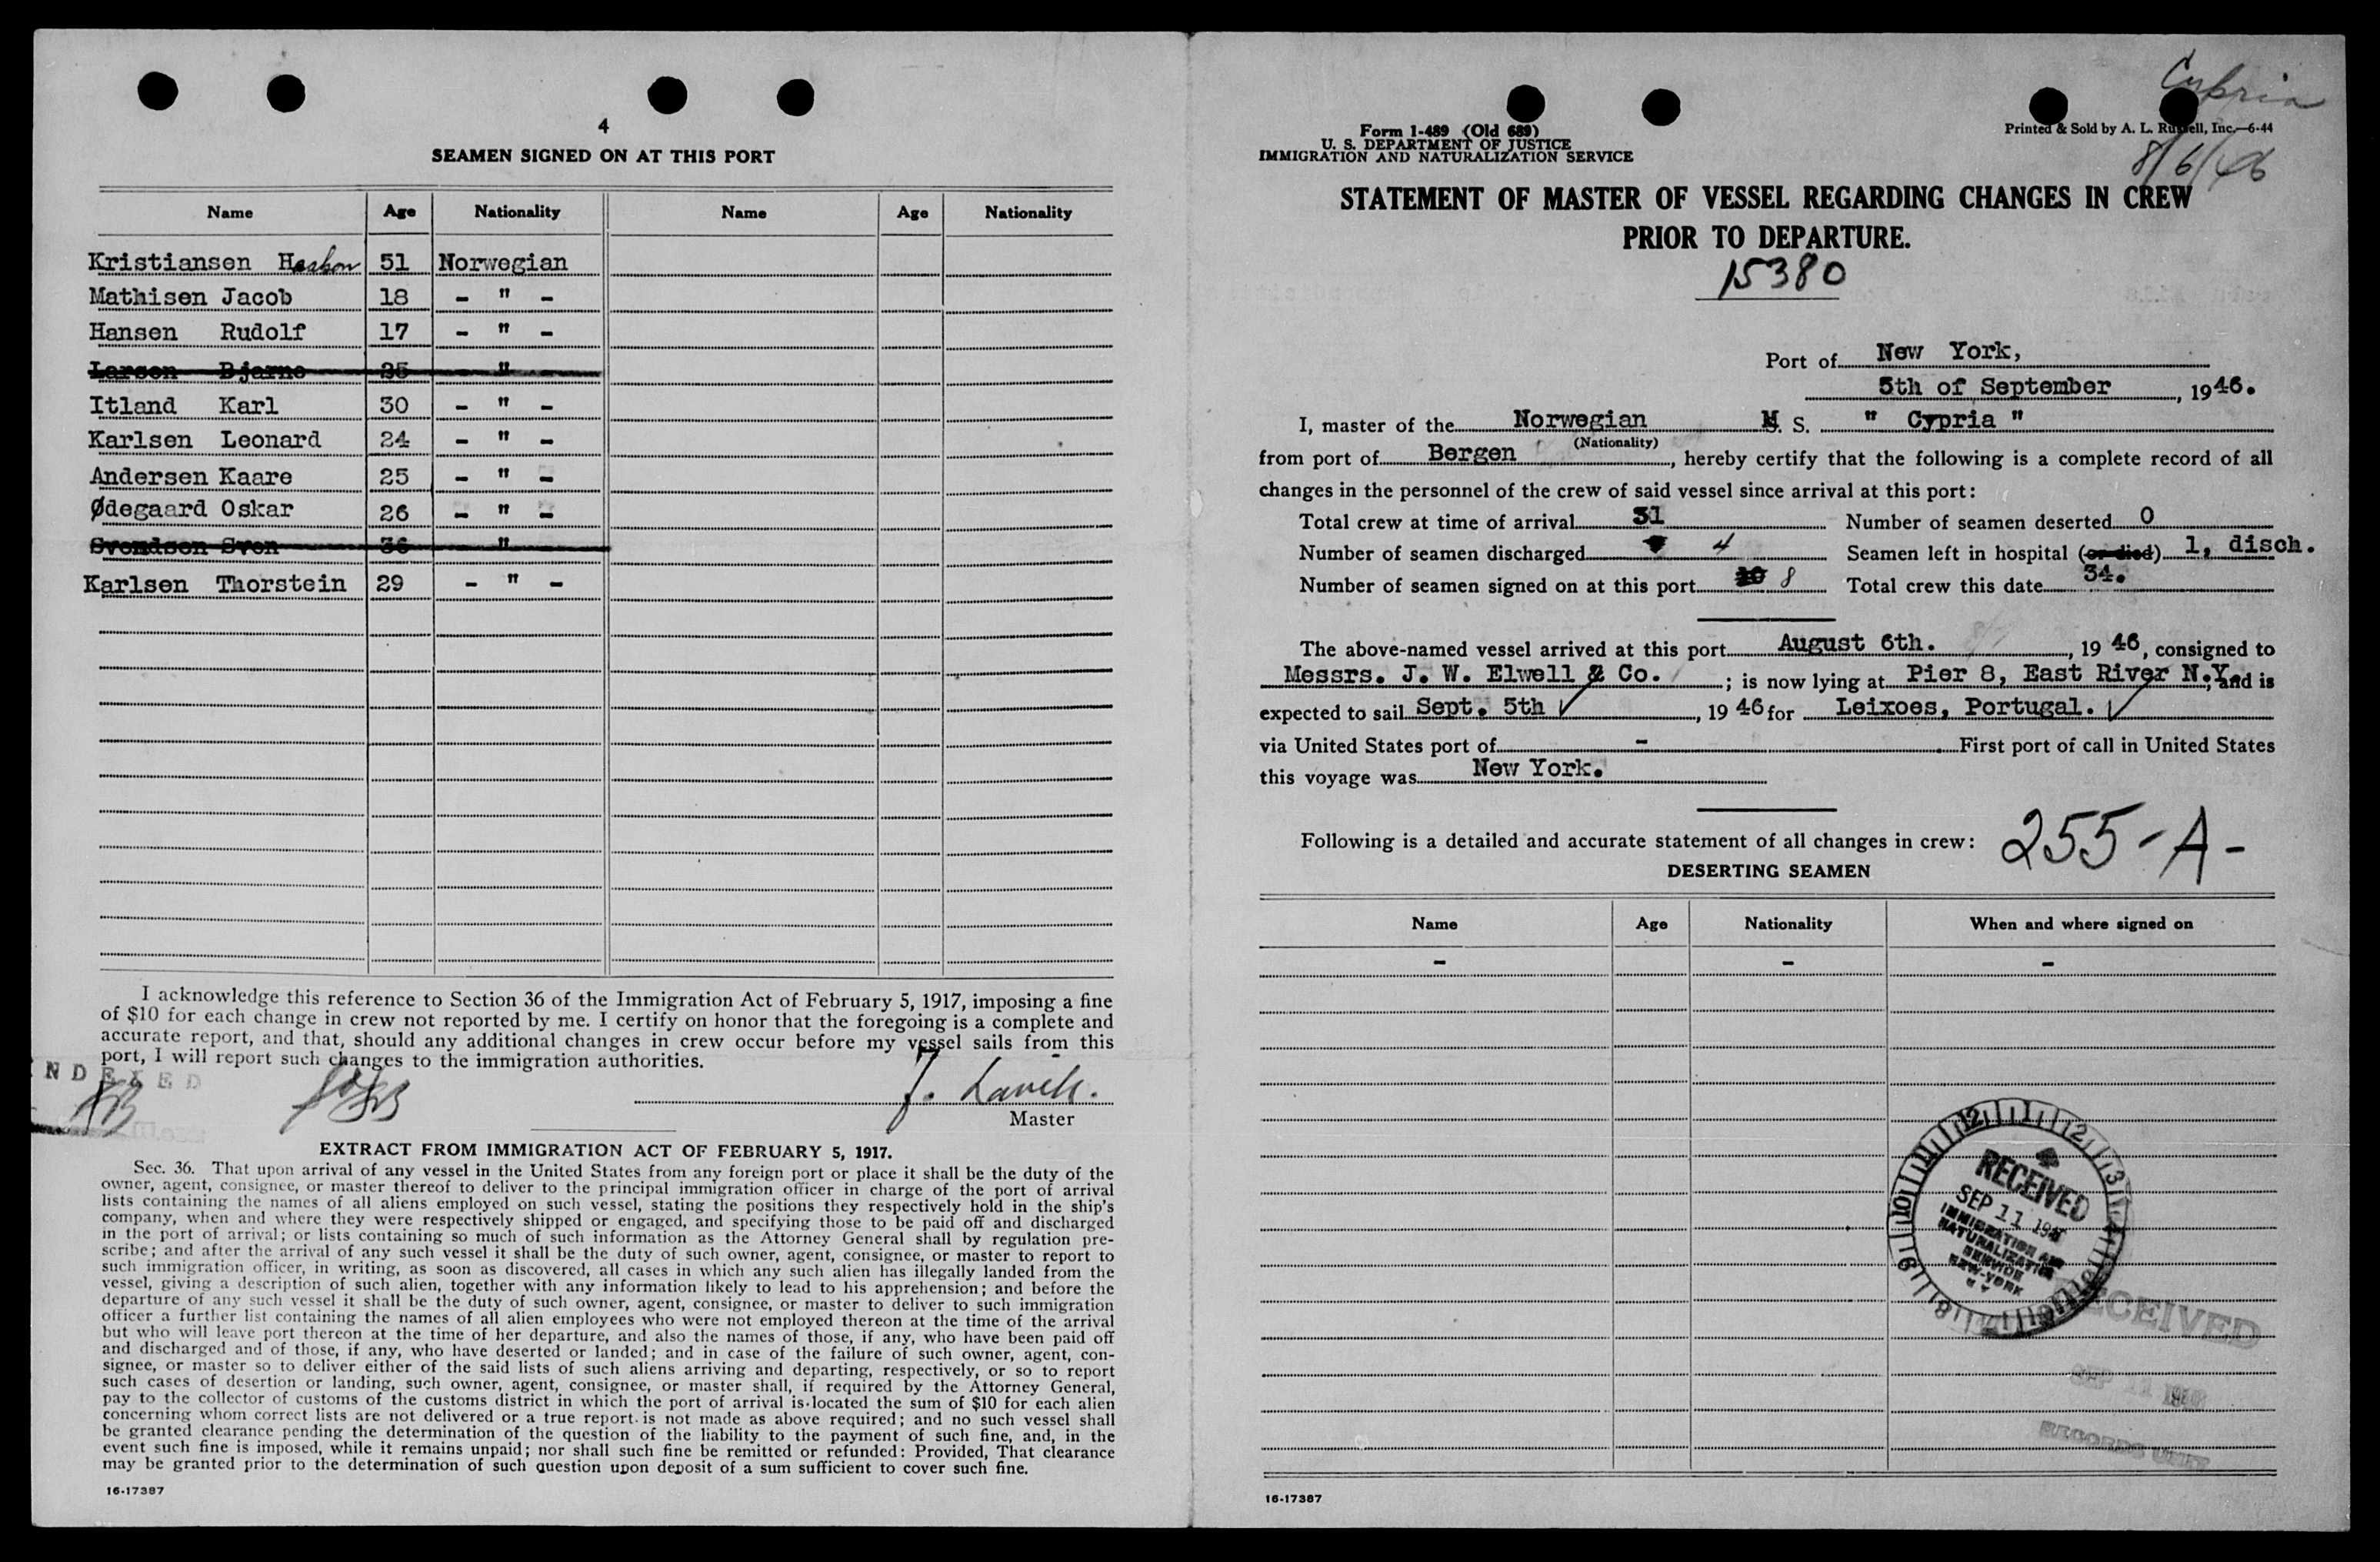 4
SEAMEN SIGNED ON AT THIS PORT
Name Age Nationality Name Age Nationality
Kristiansen 51 Norwegian
Mathisen Jacob 18 - " -
Hansen Rudolf 17 - " -
Larsen Bjarne 25 - " -
Itland Karl 30 - " -
Karlsen Leonard 24 - " -
Andersen Kaare 25 - " -
Ødegaard Oskar 26 - " -
Svendsen Sven 36 - " -
Karlsen Thorstein 29 - " -
I acknowledge this reference to Section 36 of the Immigration Act of February 5, 1917, imposing a fine
of $10 for each change in crew not reported by me. I certify on honor that the foregoing is a complete and
accurate report, and that, should any additional changes in crew occur before my vessel sails from this
port, I will report such changes to the immigration authorities.
NDEXED
Master
EXTRACT FROM IMMIGRATION ACT OF FEBRUARY 5, 1917.
Sec. 36. That upon arrival of any vessel in the United States from any foreign port or place it shall be the duty of the
owner, agent, consignee, or master thereof to deliver to the principal immigration officer in charge of the port of arrival
lists containing the names of all aliens employed on such vessel, stating the positions they respectively hold in the ship's
company, when and where they were respectively shipped or engaged, and specifying those to be paid off and discharged
in the port of arrival; or lists containing so much of such information as the Attorney General shall by regulation pre-
scribe; and after the arrival of any such vessel it shall be the duty of such owner, agent, consignee, or master to report to
such immigration officer, in writing, as soon as discovered, all cases in which any such alien has illegally landed from the
vessel, giving a description of such alien, together with any information likely to lead to his apprehension; and before the
departure of any such vessel it shall be the duty of such owner, agent, consignee, or master to deliver to such immigration
officer a further list containing the names of all alien employees who were not employed thereon at the time of the arrival
but who will leave port thereon at the time of her departure, and also the names of those, if any, who have been paid off
and discharged and of those, if any, who have deserted or landed; and in case of the failure of such owner, agent, con-
signee, or master so to deliver either of the said lists of such aliens arriving and departing, respectively, or so to report
such cases of desertion or landing, such owner, agent, consignee, or master shall, if required by the Attorney General,
pay to the collector of customs of the customs district in which the port of arrival is located the sum of $10 for each alien
concerning whom correct lists are not delivered or a true report is not made as above required; and no such vessel shall
be granted clearance pending the determination of the question of the liability to the payment of such fine, and, in the
event such fine is imposed, while it remains unpaid; nor shall such fine be remitted or refunded: Provided, That clearance
may be granted prior to the determination of such question upon deposit of a sum sufficient to cover such fine.
16-17387
Cypria
8/6/46
Form 1-489 (Old 689)
U. S. DEPARTMENT OF JUSTICE
IMMIGRATION AND NATURALIZATION SERVICE
Printed & Sold by A. L. Russell, Inc.—6-44
STATEMENT OF MASTER OF VESSEL REGARDING CHANGES IN CREW
PRIOR TO DEPARTURE.
15380
Port of New York,
5th of September, 1946.
I, master of the Norwegian M. S. " Cypria "
(Nationality)
from port of Bergen, hereby certify that the following is a complete record of all
changes in the personnel of the crew of said vessel since arrival at this port:
Total crew at time of arrival 31 Number of seamen deserted 0
Number of seamen discharged 4 Seamen left in hospital (or died) 1, disch.
Number of seamen signed on at this port 10 8 Total crew this date 34.
The above-named vessel arrived at this port August 6th., 19 46, consigned to
Messrs. J. W. Elwell & Co.; is now lying at Pier 8, East River N.Y. and is
expected to sail Sept. 5th, 19 46 for Leixoes, Portugal.
via United States port of - First port of call in United States
this voyage was New York.
Following is a detailed and accurate statement of all changes in crew:
255-A-
DESERTING SEAMEN
Name Age Nationality When and where signed on
- - -
12 1 2 3 8 9 10 11
RECEIVED
SEP 11
IMMIGRATION AND
NATURALIZATION
SERVICE
NEW-YORK
RECEIVED
SEP 11 1946
RECORDS UNIT
16-17387